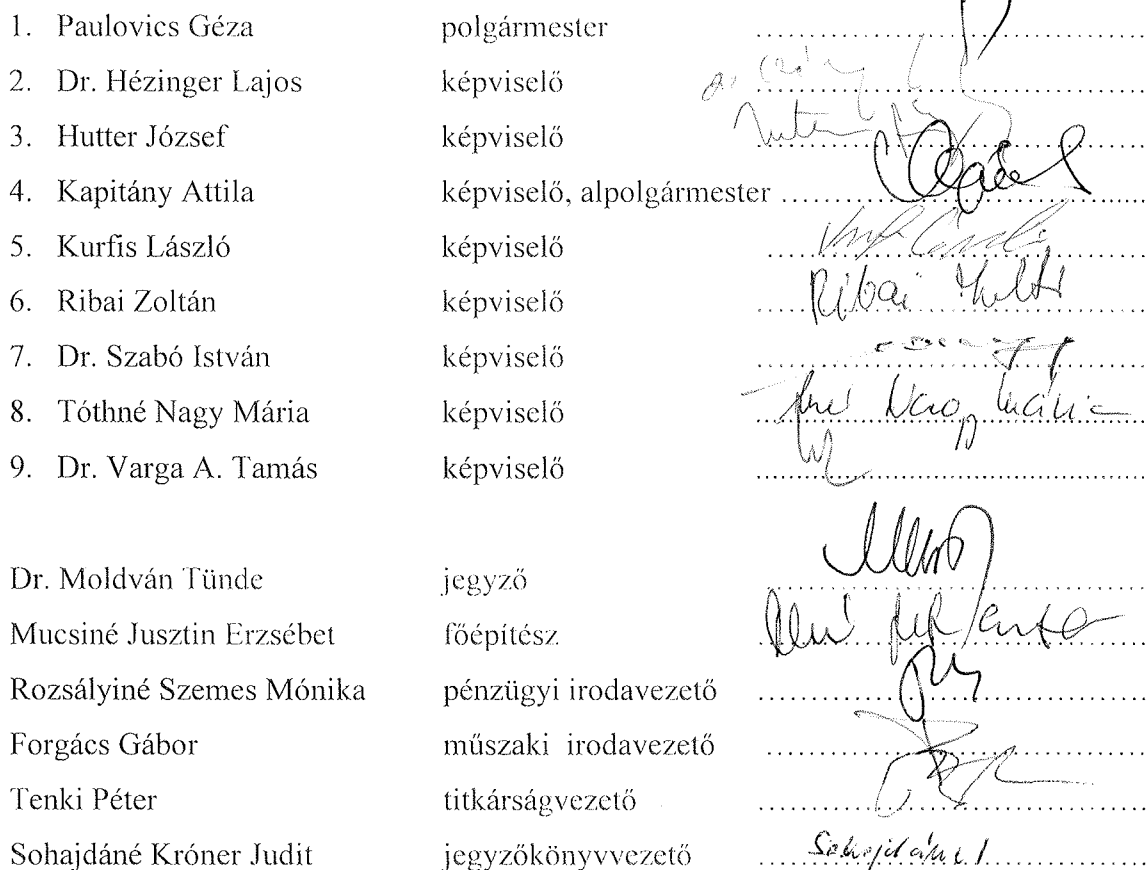 1. Paulovics Géza polgármester ........................................
2. Dr. Hézinger Lajos képviselő ........................................
3. Hutter József képviselő ........................................
4. Kapitány Attila képviselő, alpolgármester ........................................
5. Kurfis László képviselő ........................................
6. Ribai Zoltán képviselő Ribai Zoltán
7. Dr. Szabó István képviselő ........................................
8. Tóthné Nagy Mária képviselő Nagy Mária
9. Dr. Varga A. Tamás képviselő ........................................
Dr. Moldván Tünde jegyző ........................................
Mucsiné Jusztin Erzsébet főépítész ........................................
Rozsályiné Szemes Mónika pénzügyi irodavezető ........................................
Forgács Gábor műszaki irodavezető ........................................
Tenki Péter titkárságvezető ........................................
Sohajdáné Króner Judit jegyzőkönyvvezető ........................................